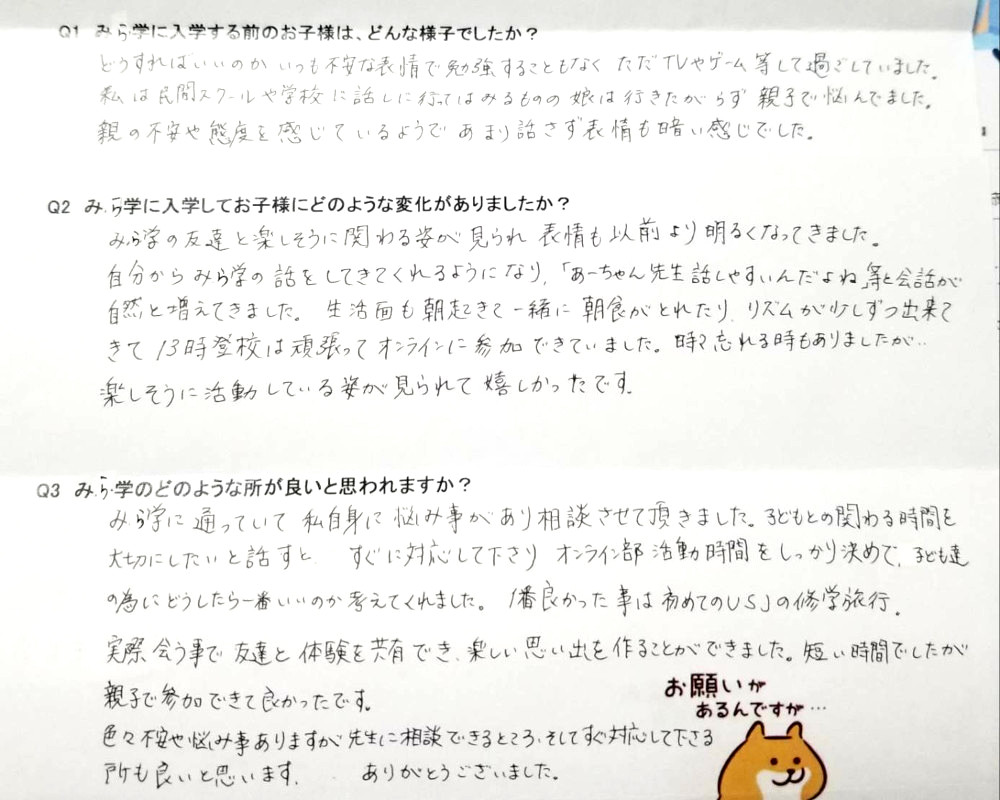 Q1 みら学に入学する前のお子様は、どんな様子でしたか？
どうすればいいのか いつも不安な表情で勉強することもなく ただTVやゲーム等して過ごしていました。
私は民間スクールや学校に話しに行ってはみるものの 娘は行きたがらず 親子で悩んでました。
親の不安や態度を感じているようで あまり話さず表情も暗い感じでした。
Q2 みら学に入学してお子様にどのような変化がありましたか？
みら学の友達と楽しそうに関わる姿が見られ 表情も以前より明るくなってきました。
自分からみら学の話をしてきてくれるようになり、「あーちゃん先生話しやすいんだよね」等と会話が
自然と増えてきました。 生活面も朝起きて一緒に朝食がとれたり、リズムが少しずつ出来て
きて 13時登校は頑張ってオンラインに参加できていました。時々忘れる時もありましたが‥
楽しそうに活動している姿が見られて嬉しかったです。
Q3 みら学のどのような所が良いと思われますか？
みら学に通っていて 私自身に悩み事があり相談させて頂きました。子どもとの関わる時間を
大切にしたいと話すと、 すぐに対応して下さり オンライン部活動時間をしっかり決めて、子ども達
の為にどうしたら一番いいのか考えてくれました。 1番良かった事は初めてのUSJの修学旅行。
実際会う事で友達と体験を共有でき、楽しい思い出を作ることができました。短い時間でしたが
親子で参加できて良かったです。
色々不安や悩み事ありますが先生に相談できるところ、そしてすぐ対応して下さる
所も良いと思います。 ありがとうございました。
お願いが
あるんですが…